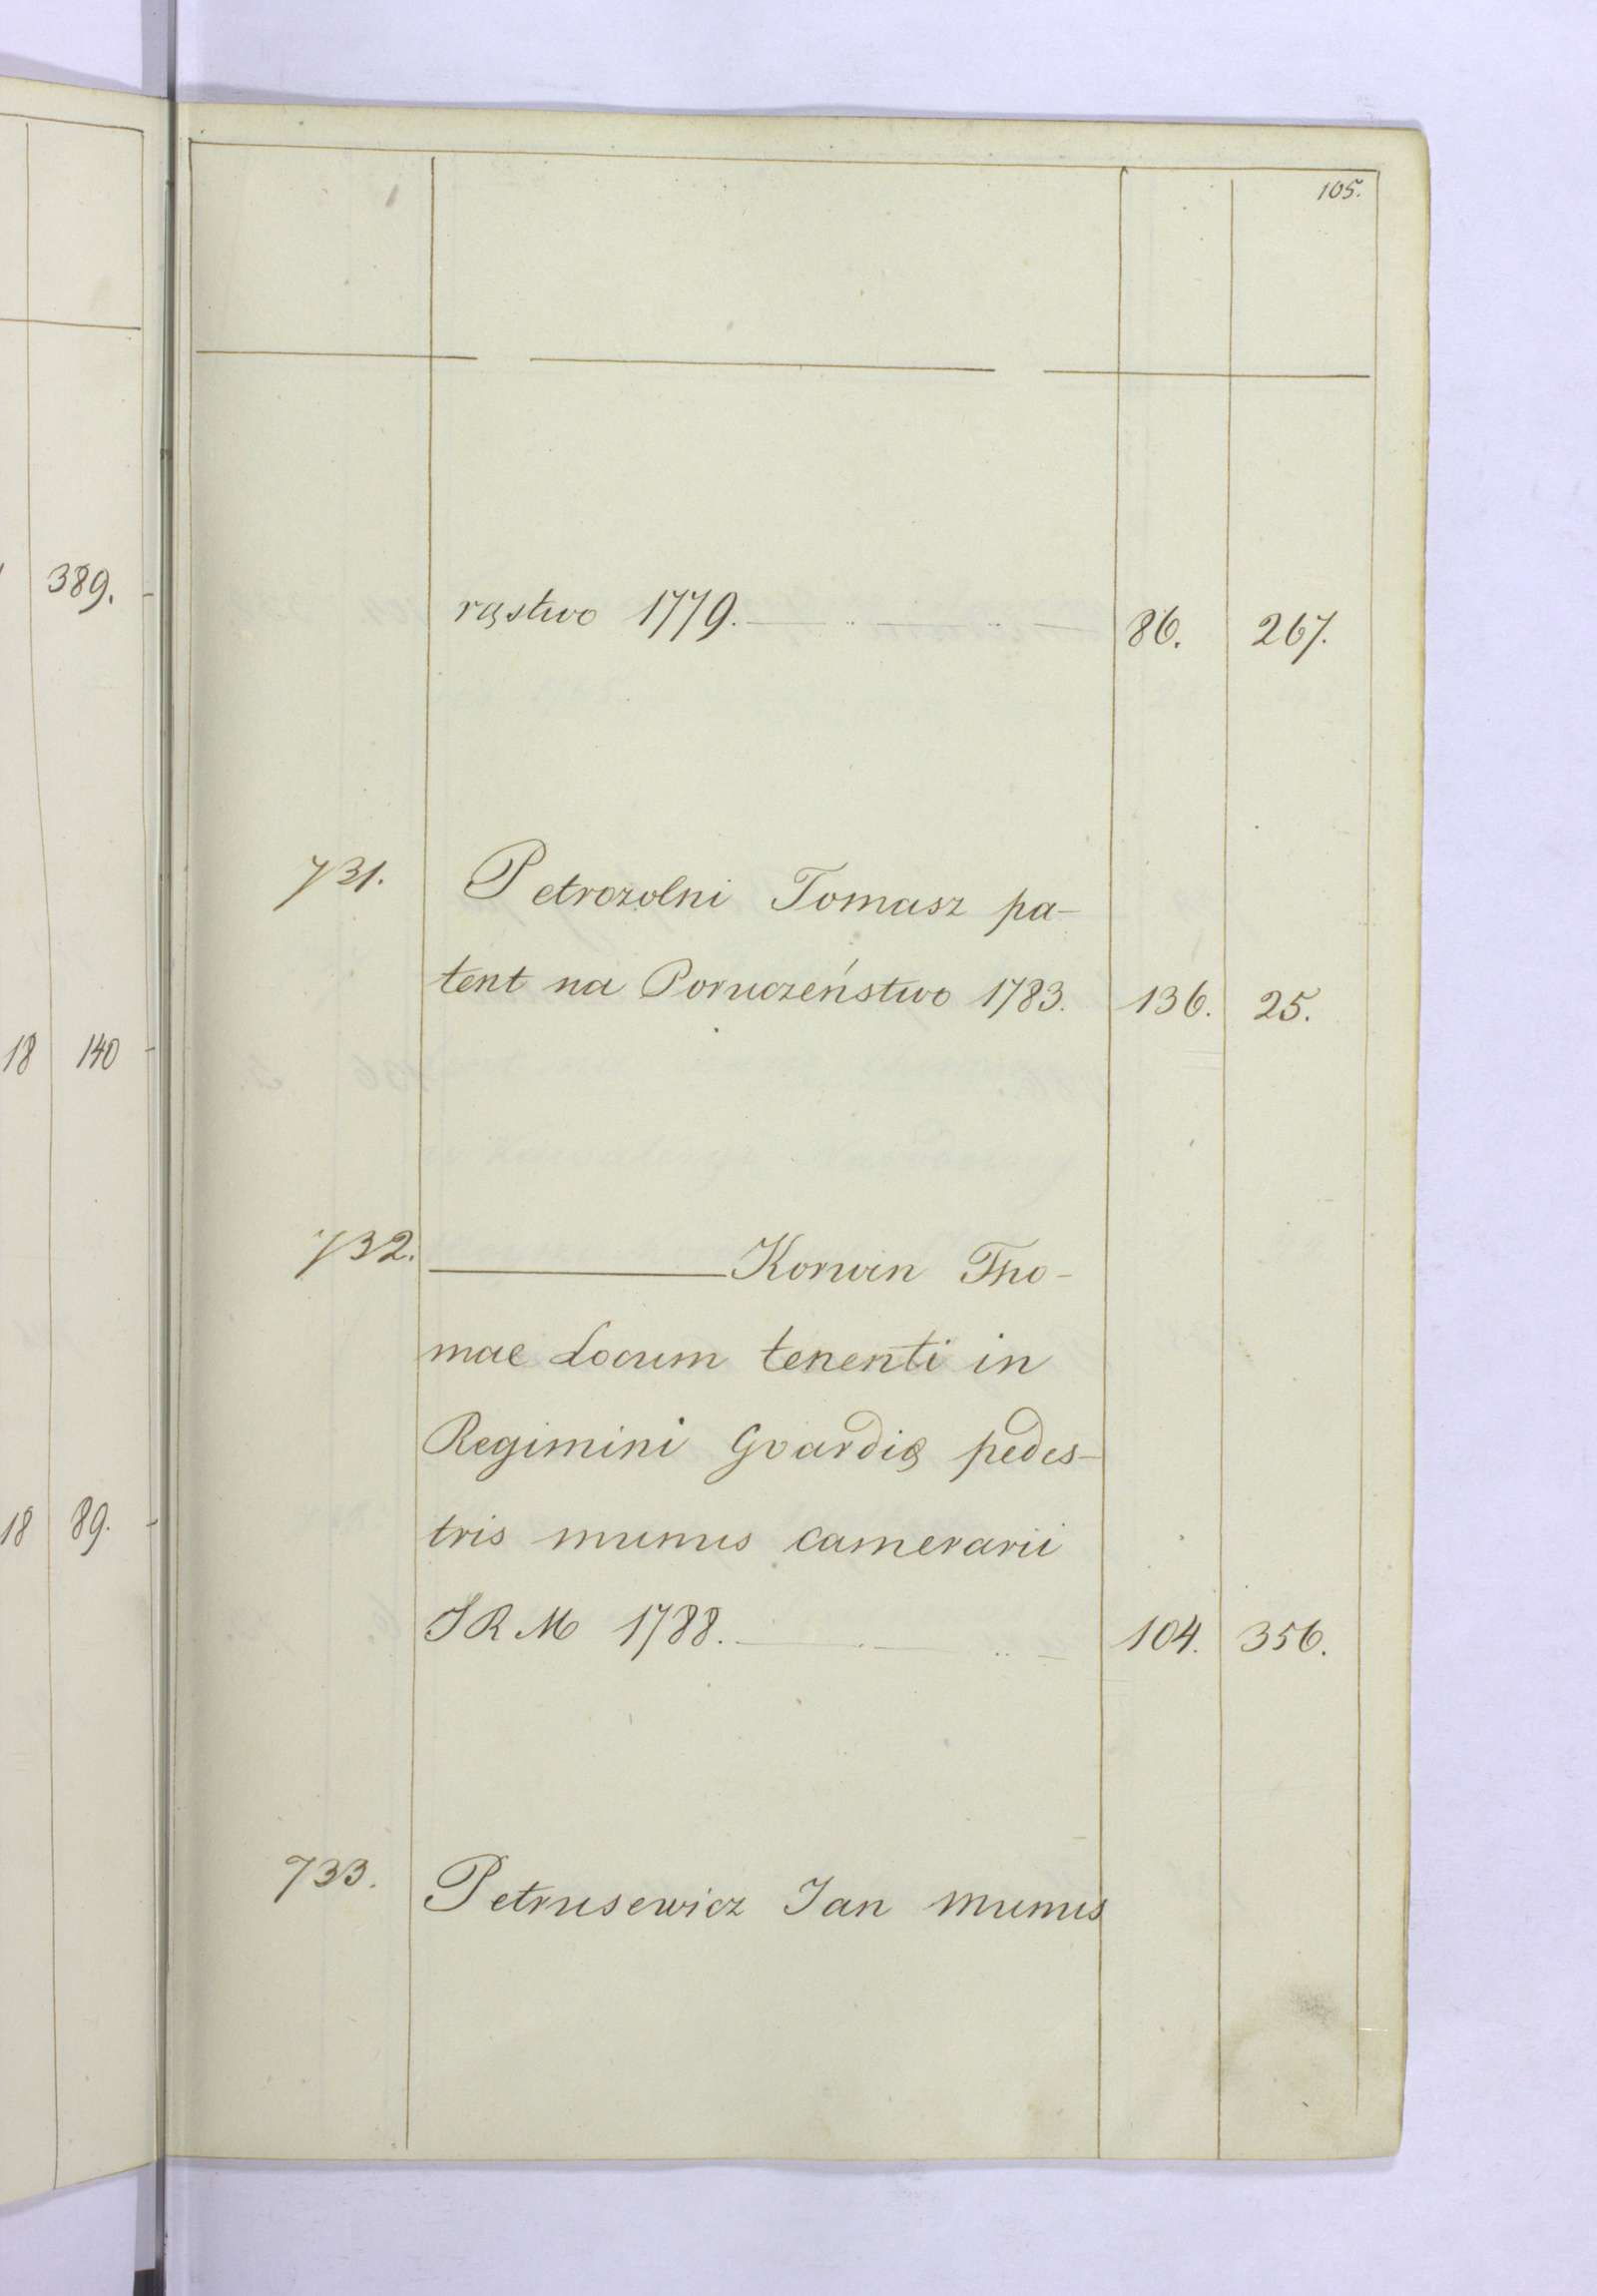 105.
389.
rąstwo 1779. 86. 267.
731. Petrozolni Tomasz pa-
tent na Poruczeństwo 1783. 136. 25.
18 140
732. Korwin Tho-
mae Locum tenenti in
Regimini Gvardię pedes-
18 89.
tris munus camerarii
SRM 1788. 104. 356.
733. Petrusewicz Jan munus